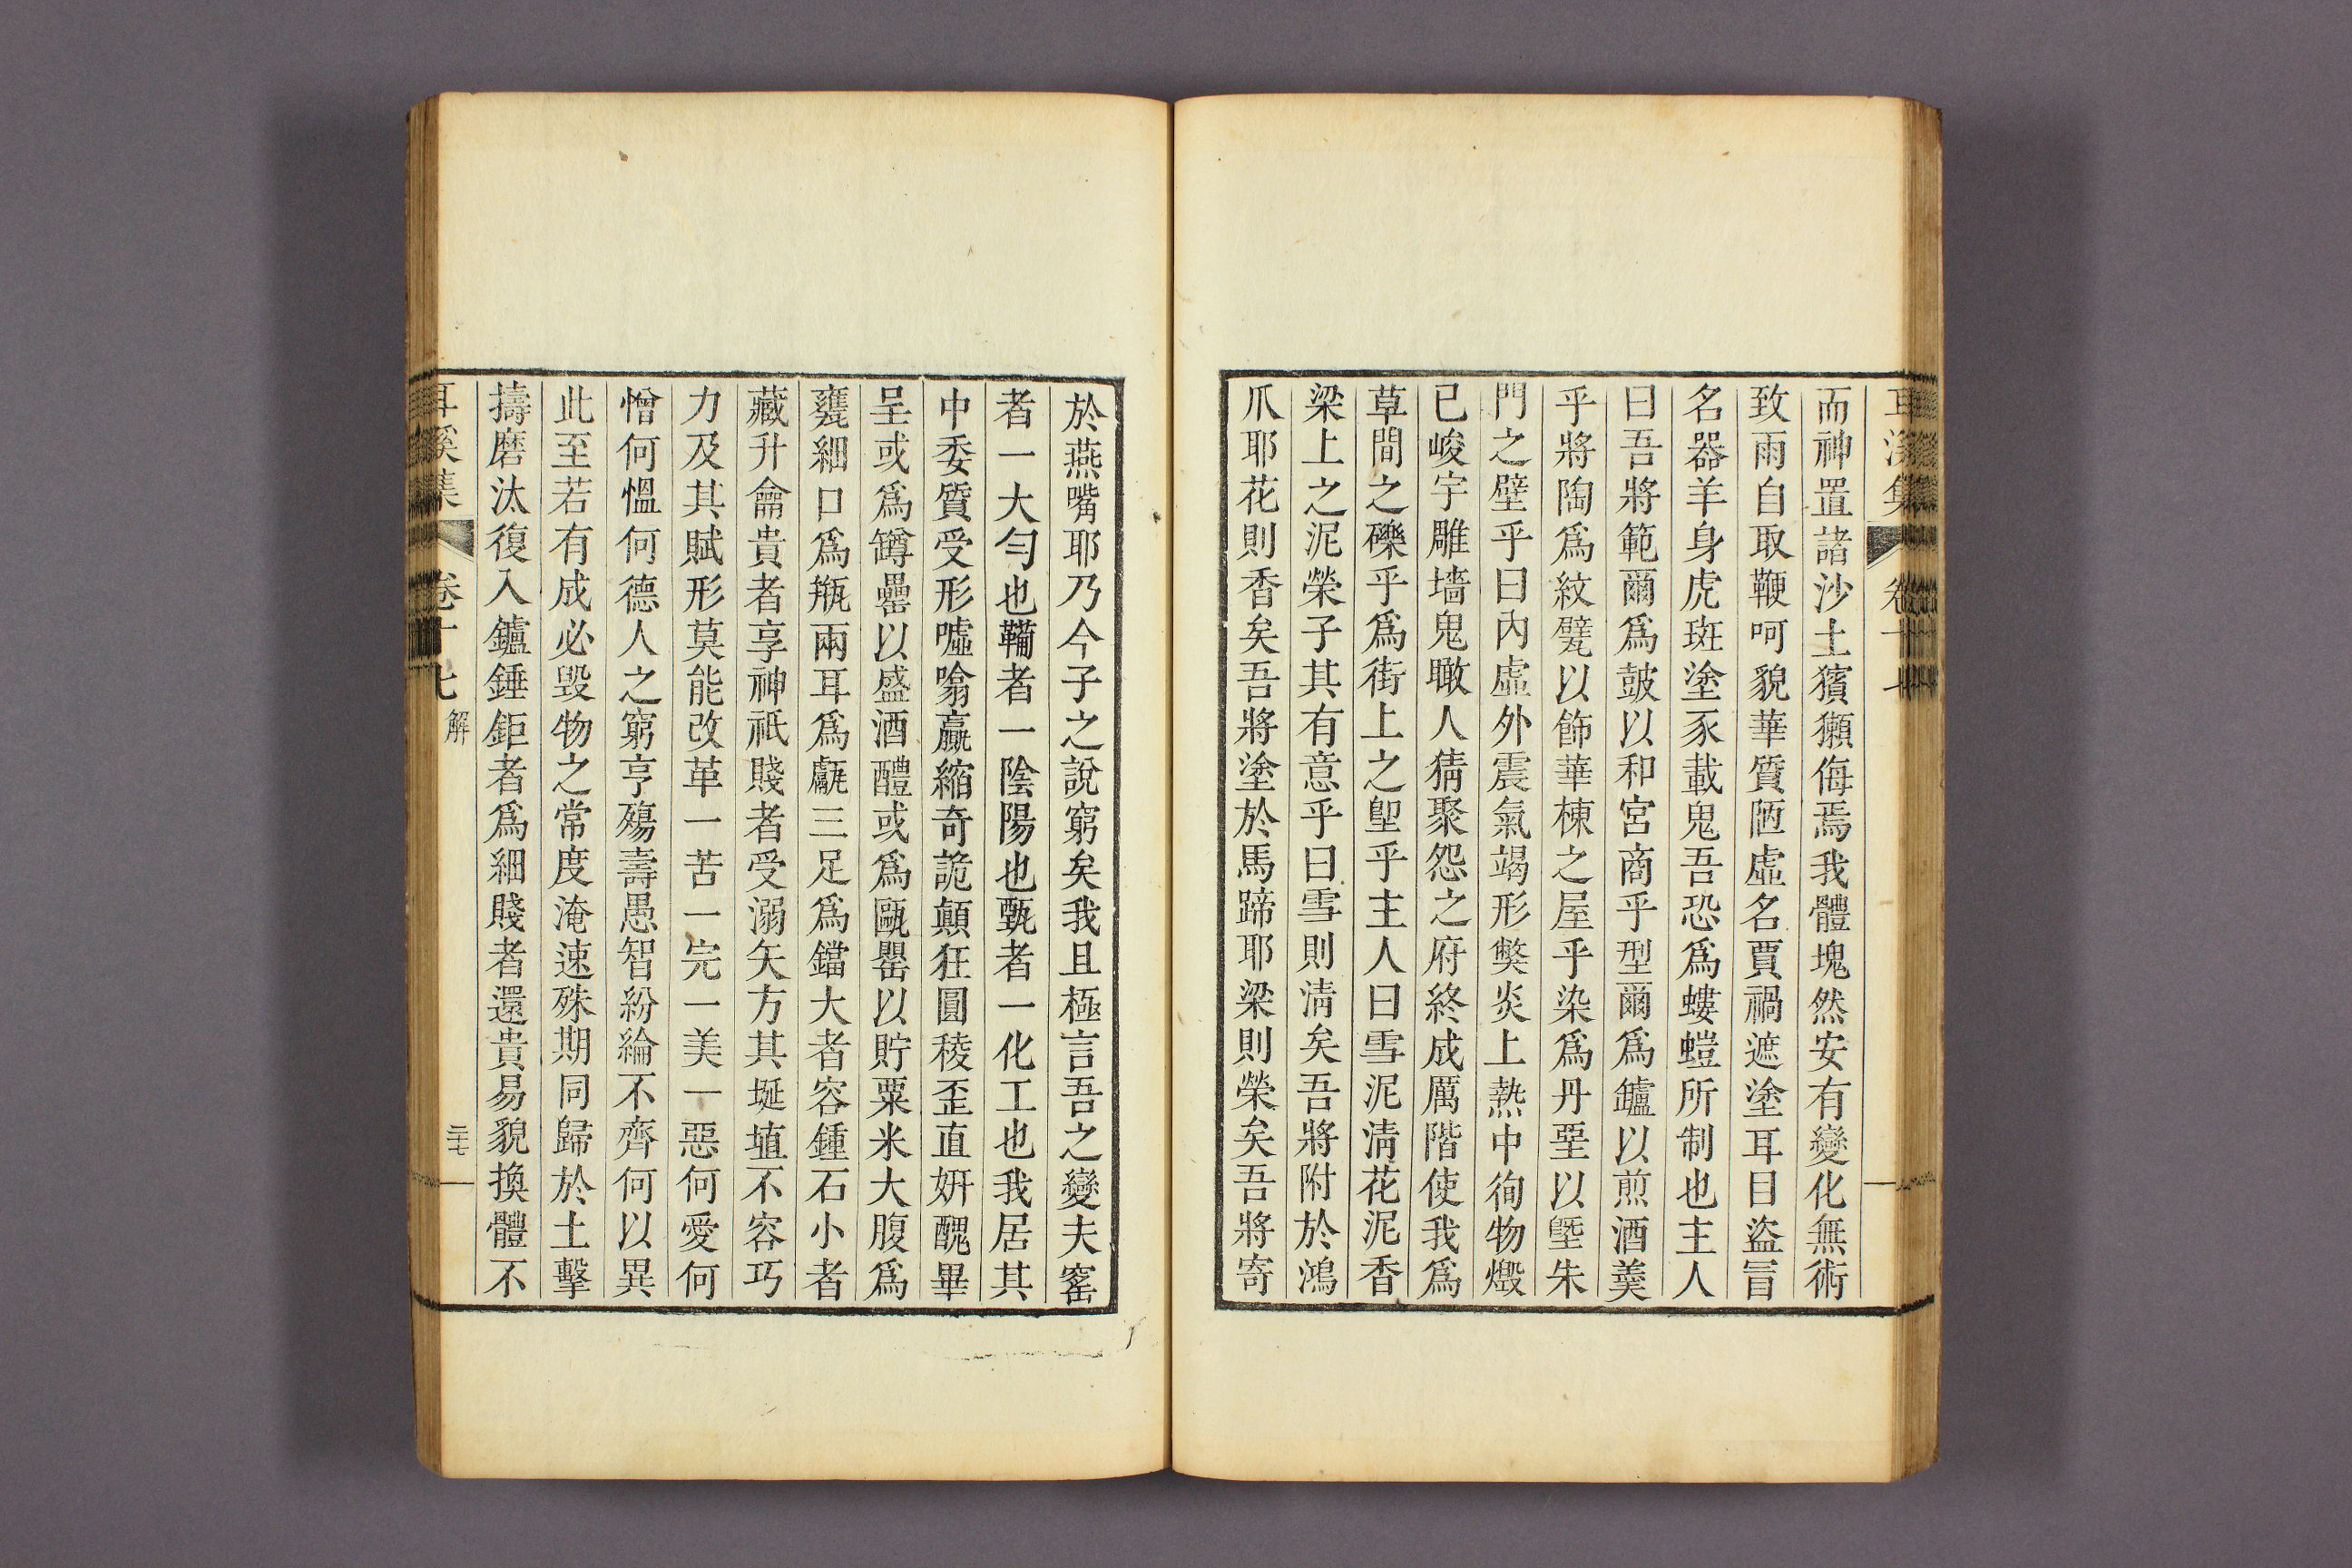 耳溪集 卷十七
而神置諸沙土獱獺侮焉我體塊然安有變化無術
致雨自取鞭呵貌華質陋虛名賈禍遮塗耳目盜冒
名器羊身虎斑塗豕載鬼吾恐爲螻螘所制也主人
曰吾將範爾爲鼓以和宮商乎型爾爲鑪以煎酒羹
乎將陶爲紋甓以飾華棟之屋乎染爲丹堊以墍朱
門之壁乎曰內虛外震氣竭形獘炎上熱中徇物燬
已峻宇雕墻鬼瞰人猜聚怨之府終成厲階使我爲
草間之礫乎爲街上之堲乎主人曰雪泥淸花泥香
梁上之泥榮子其有意乎曰雪則淸矣吾將附於鴻
爪耶花則香矣吾將塗於馬蹄耶梁則榮矣吾將寄
於燕嘴耶乃今子之說窮矣我且極言吾之變夫窰
者一大匀也鞴者一陰陽也甄者一化工也我居其
中委質受形噓噏贏縮奇詭顚狂圓稜歪直姸醜畢
呈或爲罇罍以盛酒醴或爲甌罌以貯粟米大腹爲
甕細口爲甁兩耳爲甗三足爲鐺大者容鍾石小者
藏升龠貴者享神祇賤者受溺矢方其埏埴不容巧
力及其賦形莫能改革一苦一完一美一惡何愛何
憎何慍何德人之窮亨殤壽愚智紛綸不齊何以異
此至若有成必毀物之常度淹速殊期同歸於土擊
擣磨汰復入鑪錘鉅者爲細賤者還貴易貌換體不
耳溪集 卷十七 解 二十七